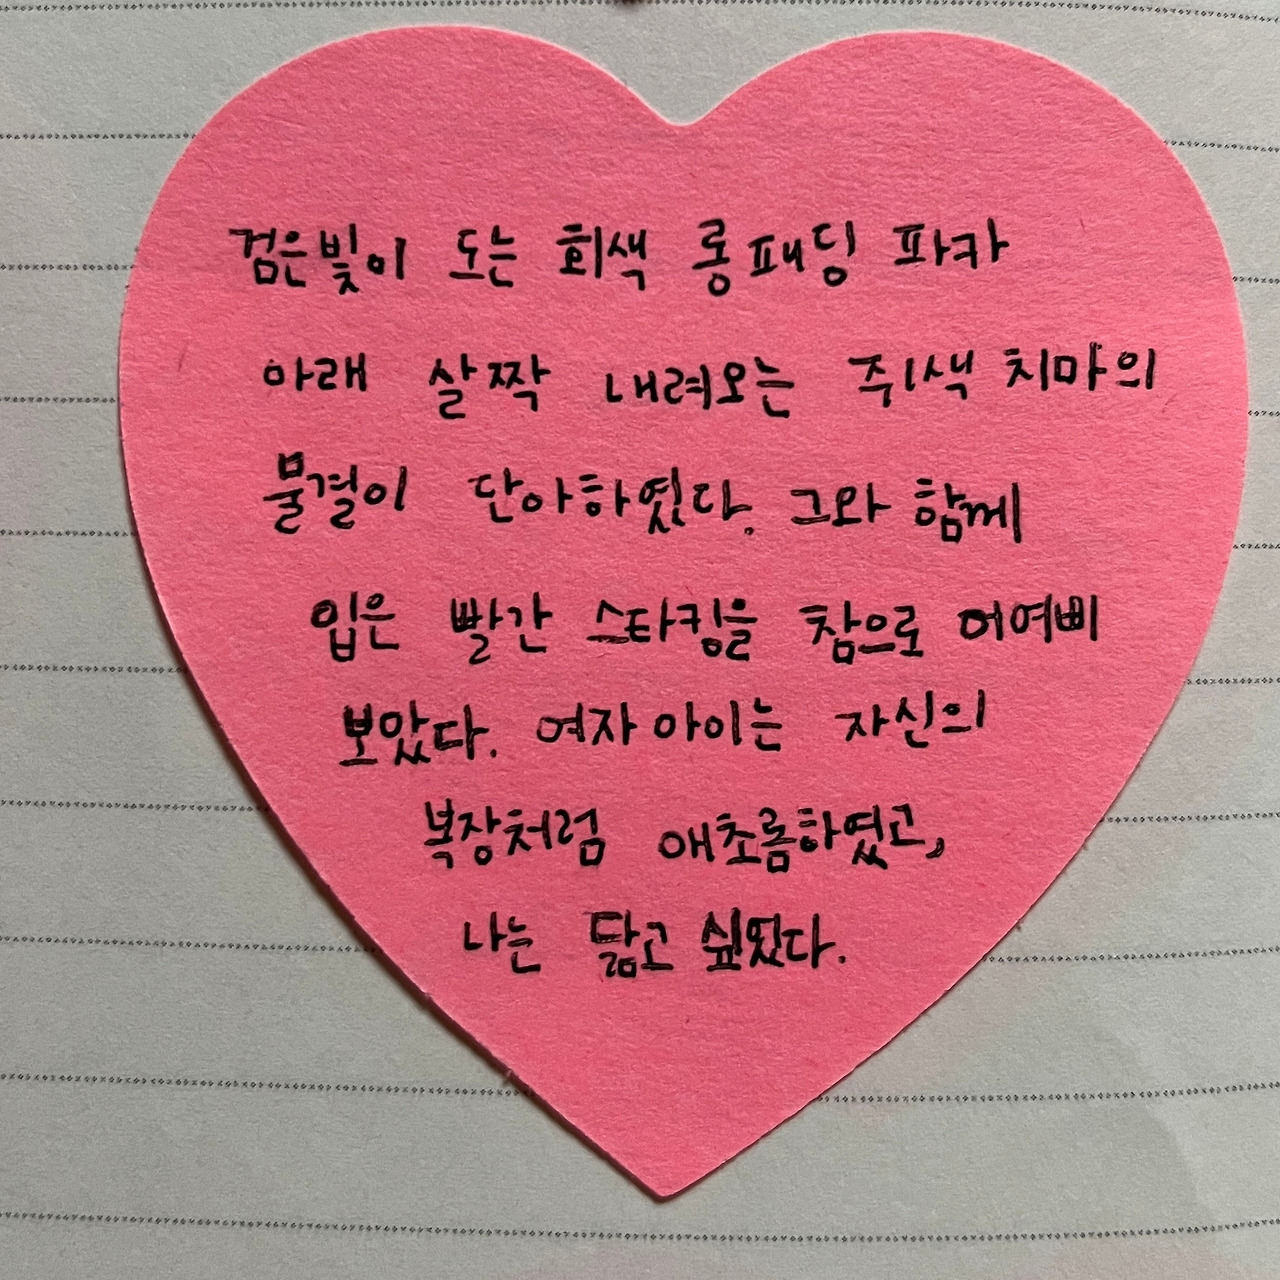 검은빛이 도는 회색 롱패딩 파카
아래 살짝 내려오는 쥐색 치마의
물결이 단아하였다. 그와 함께
입은 빨간 스타킹을 참으로 어여삐
보았다. 여자아이는 자신의
복장처럼 애초롬하였고,
나는 닮고 싶었다.